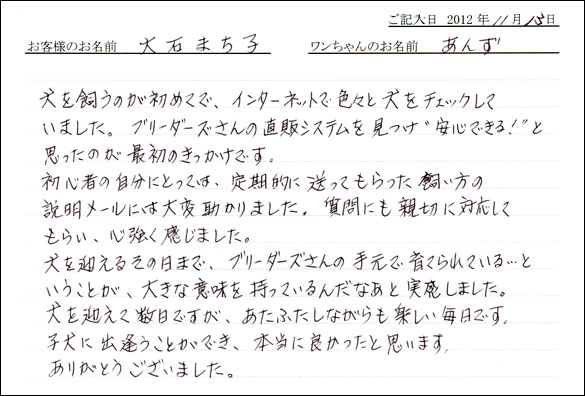 ご記入日 2012年11月13日
お客様のお名前 大石まち子 ワンちゃんのお名前 あんず
犬を飼うのが初めてで、インターネットで色々と犬をチェックして
いました。ブリーダーズさんの直販システムを見つけ"安心できる!"と
思ったのが最初のきっかけです。
初心者の自分にとっては、定期的に送ってもらった飼い方の
説明メールには大変助かりました。質問にも親切に対応して
もらい、心強く感じました。
犬を迎えるその日まで、ブリーダーズさんの手元で育てられている…と
いうことが、大きな意味を持っているんだなあと実感しました。
犬を迎えて数日ですが、あたふたしながらも楽しい毎日です。
子犬に出逢うことができ、本当に良かったと思います。
ありがとうございました。